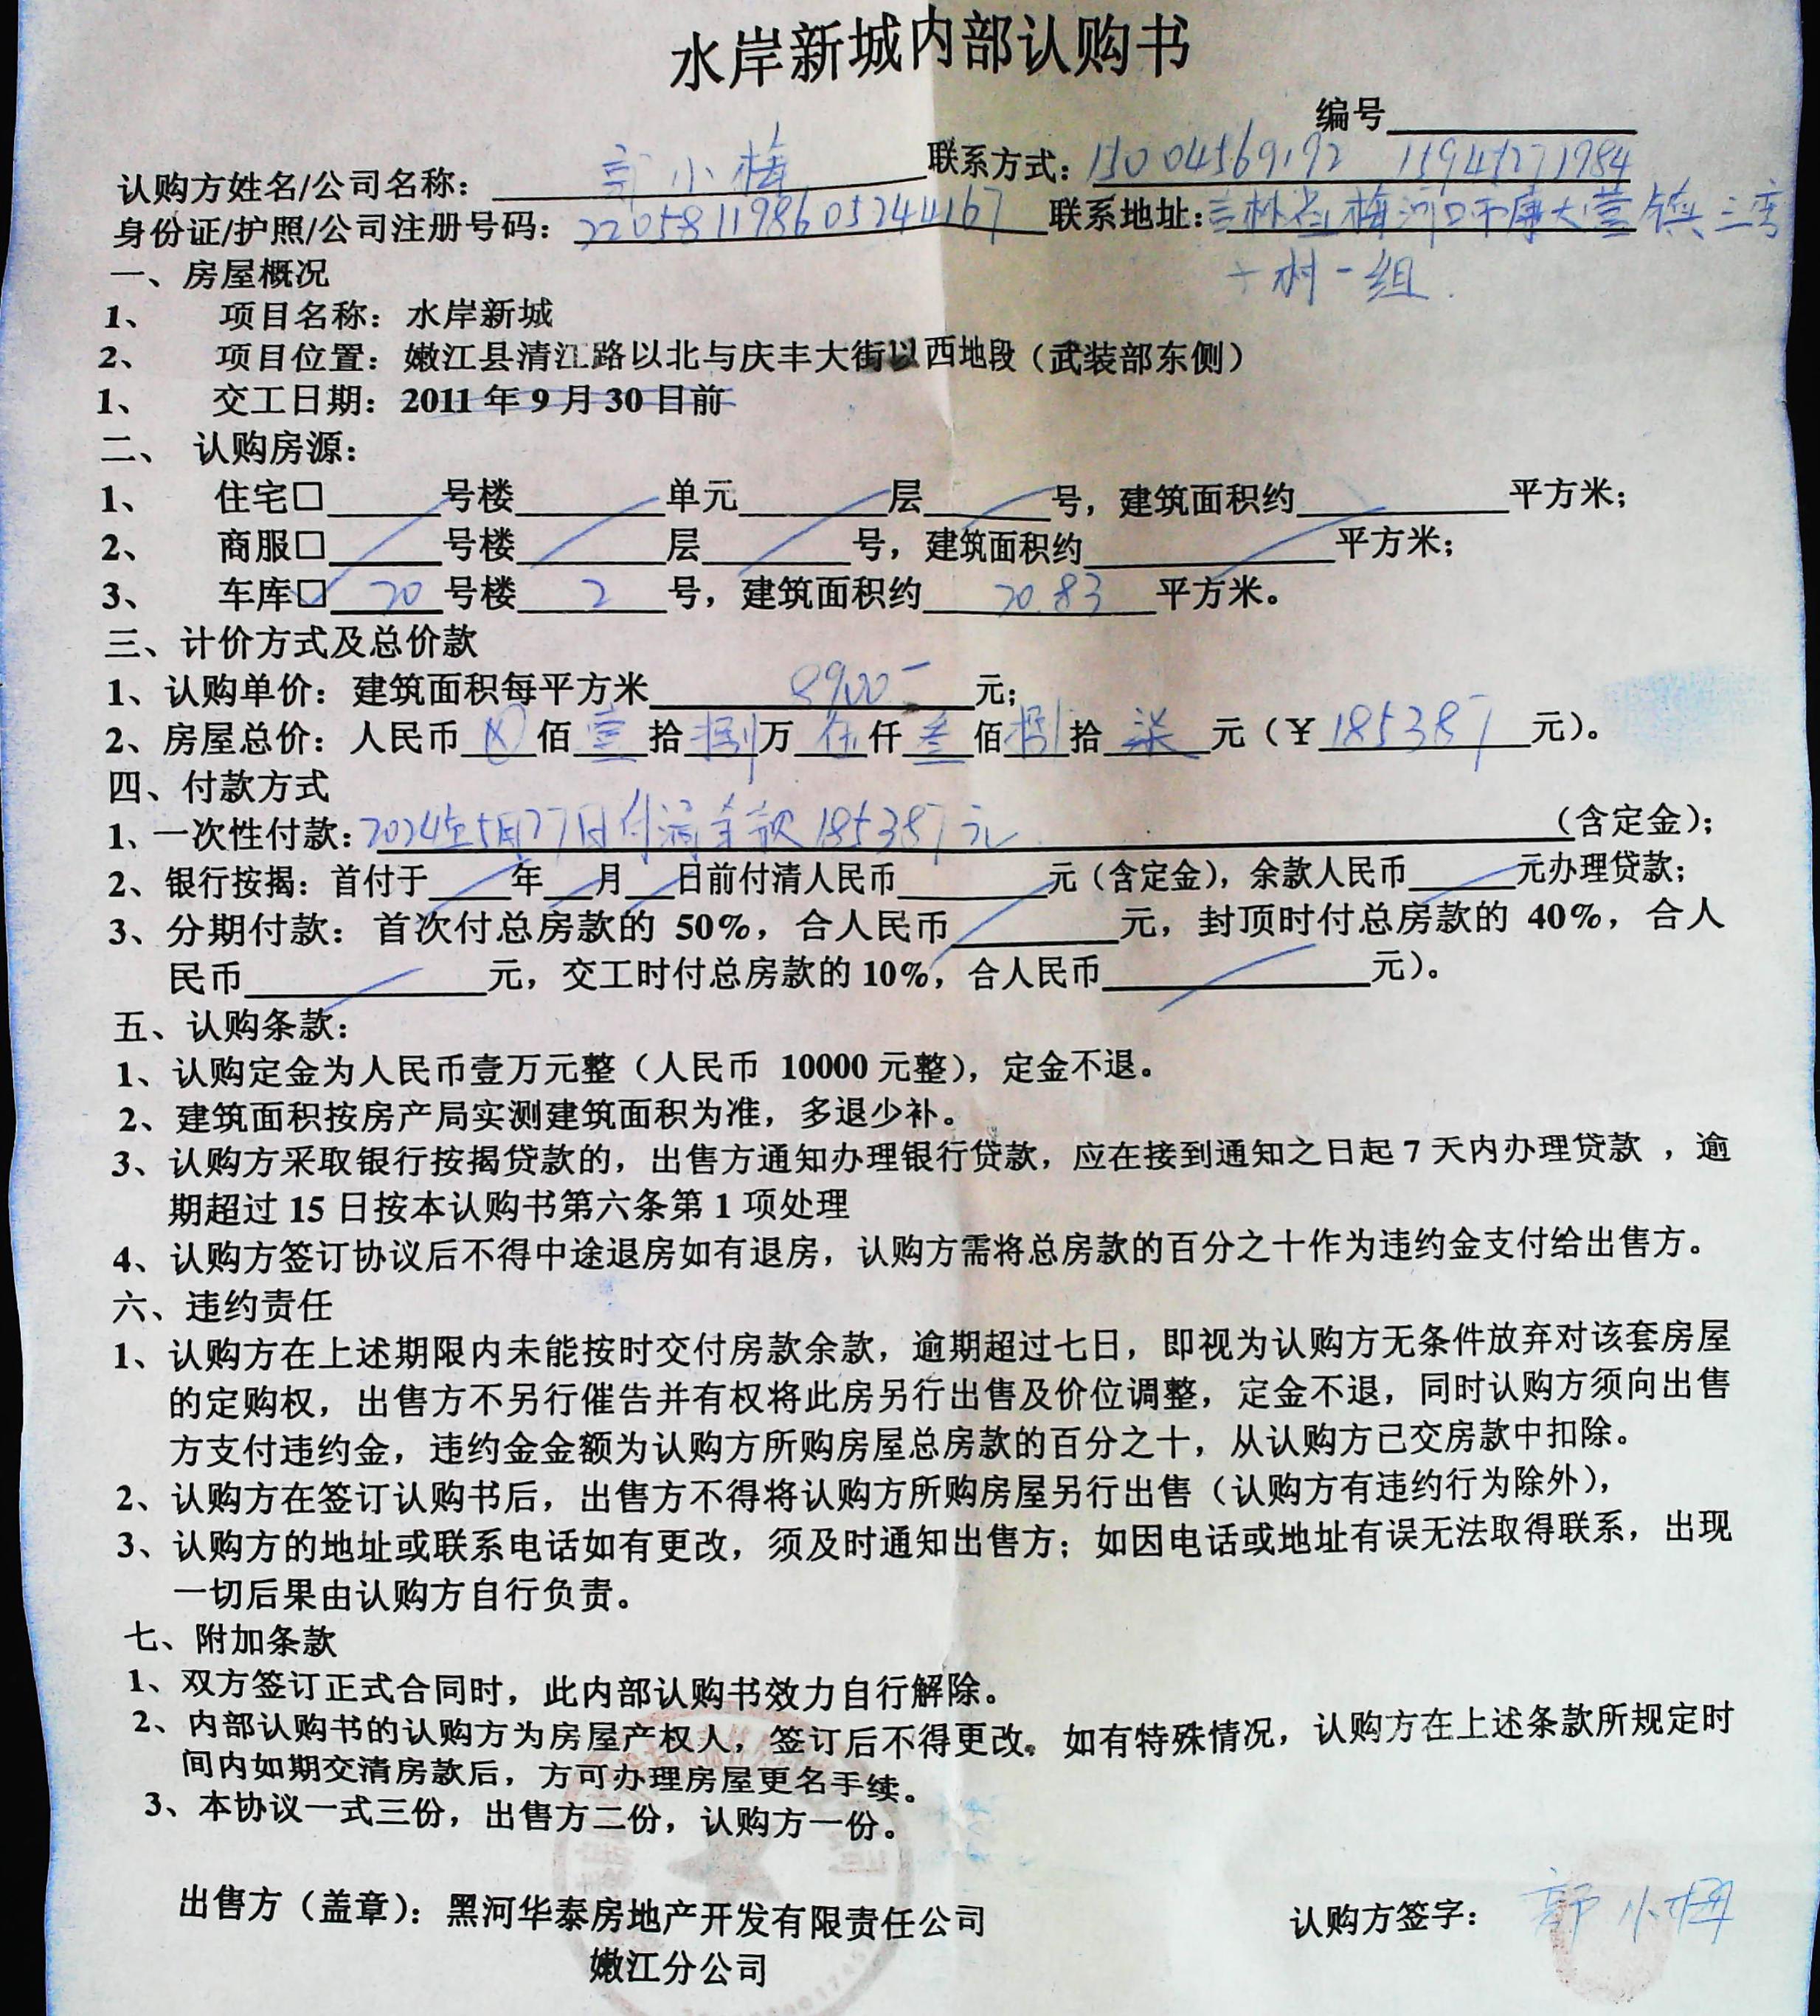 水岸新城内部认购书
编号
认购方姓名/公司名称：郭小梅 联系方式：15004569192 15945271984
身份证/护照/公司注册号码：220581198605244167 联系地址：吉林省梅河口市康大营镇三弯
子村一组
一、房屋概况
1、 项目名称：水岸新城
2、 项目位置：嫩江县清江路以北与庆丰大街以西地段（武装部东侧）
1、 交工日期：2011年9月30日前
二、 认购房源：
1、 住宅□ 号楼 单元 层 号，建筑面积约 平方米；
2、 商服□ 号楼 层 号，建筑面积约 平方米；
3、 车库☑ 20 号楼 2 号，建筑面积约 20.83 平方米。
三、计价方式及总价款
1、认购单价：建筑面积每平方米 8900- 元；
2、房屋总价：人民币 ⊗ 佰 壹 拾 捌 万 伍 仟 叁 佰 捌 拾 柒 元（￥185387 元）。
四、付款方式
1、一次性付款：2024年5月27日付清全款185387元 （含定金）；
2、银行按揭：首付于 年 月 日前付清人民币 元（含定金），余款人民币 元办理贷款；
3、分期付款：首次付总房款的 50%，合人民币 元，封顶时付总房款的 40%，合人
民币 元，交工时付总房款的10%，合人民币 元）。
五、认购条款：
1、认购定金为人民币壹万元整（人民币 10000元整），定金不退。
2、建筑面积按房产局实测建筑面积为准，多退少补。
3、认购方采取银行按揭贷款的，出售方通知办理银行贷款，应在接到通知之日起7天内办理贷款 ，逾
期超过15日按本认购书第六条第1项处理
4、认购方签订协议后不得中途退房如有退房，认购方需将总房款的百分之十作为违约金支付给出售方。
六、违约责任
1、认购方在上述期限内未能按时交付房款余款，逾期超过七日，即视为认购方无条件放弃对该套房屋
的定购权，出售方不另行催告并有权将此房另行出售及价位调整，定金不退，同时认购方须向出售
方支付违约金，违约金金额为认购方所购房屋总房款的百分之十，从认购方已交房款中扣除。
2、认购方在签订认购书后，出售方不得将认购方所购房屋另行出售（认购方有违约行为除外），
3、认购方的地址或联系电话如有更改，须及时通知出售方；如因电话或地址有误无法取得联系，出现
一切后果由认购方自行负责。
七、附加条款
1、双方签订正式合同时，此内部认购书效力自行解除。
2、内部认购书的认购方为房屋产权人，签订后不得更改。如有特殊情况，认购方在上述条款所规定时
间内如期交清房款后，方可办理房屋更名手续。
3、本协议一式三份，出售方二份，认购方一份。
出售方（盖章）：黑河华泰房地产开发有限责任公司 认购方签字：郭小梅
嫩江分公司